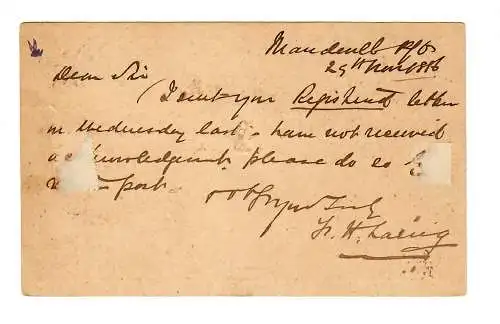 Mandeville P.O.
29th Nov 1886
Dear Sir
I sent you Registered letter
on Wednesday last - have not received
acknowledgment. please do so
post
& oblige yours truly
H. Laing